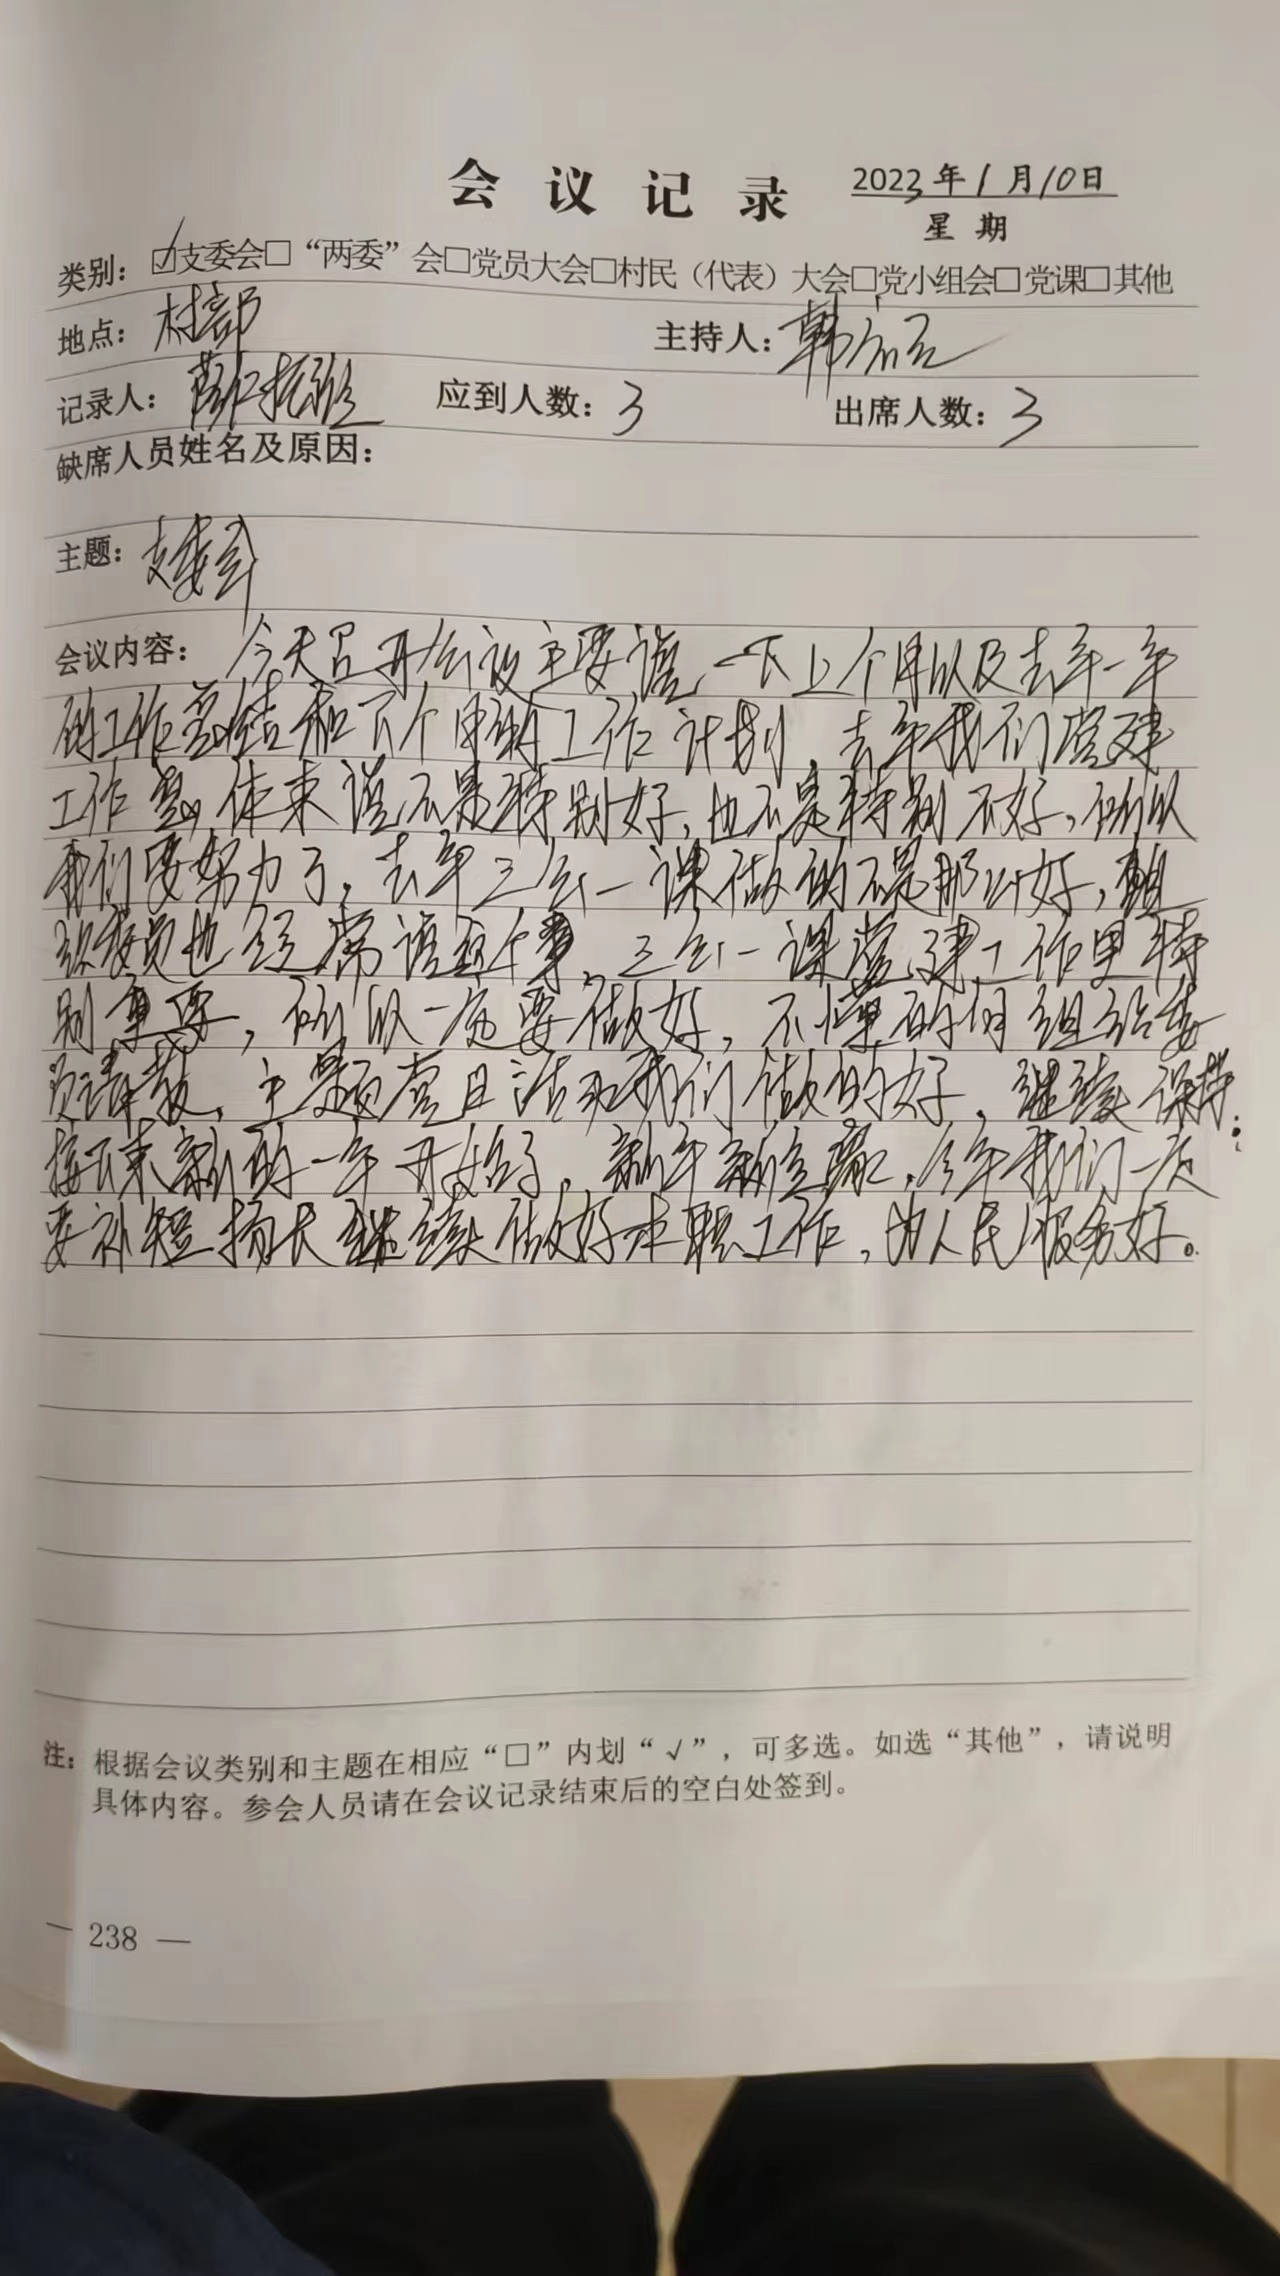 会议记录 2023年1月10日
星期
类别：☑支委会□“两委”会□党员大会□村民（代表）大会□党小组会□党课□其他
地点：村部 主持人：韩
记录人：薛振 应到人数：3 出席人数：3
缺席人员姓名及原因：
主题：支委会
会议内容：今天召开会议主要谈一下上个月以及去年一年
的工作总结和下个月的工作计划，去年我们党建
工作总体来说不是特别好，也不是特别不好，所以
我们要努力了，去年三会一课做的不是那么好，组
织委员也经常谈这个事，三会一课党建工作里特
别重要，所以一定要做好，不懂的问组织委
员请教，主题党日活动我们做的好，继续保持；
接下来新的一年开始了，新年新气象，今年我们一定
要补短扬长继续做好本职工作，为人民服务好。
注：根据会议类别和主题在相应“□”内划“√”，可多选。如选“其他”，请说明
具体内容。参会人员请在会议记录结束后的空白处签到。
— 238 —